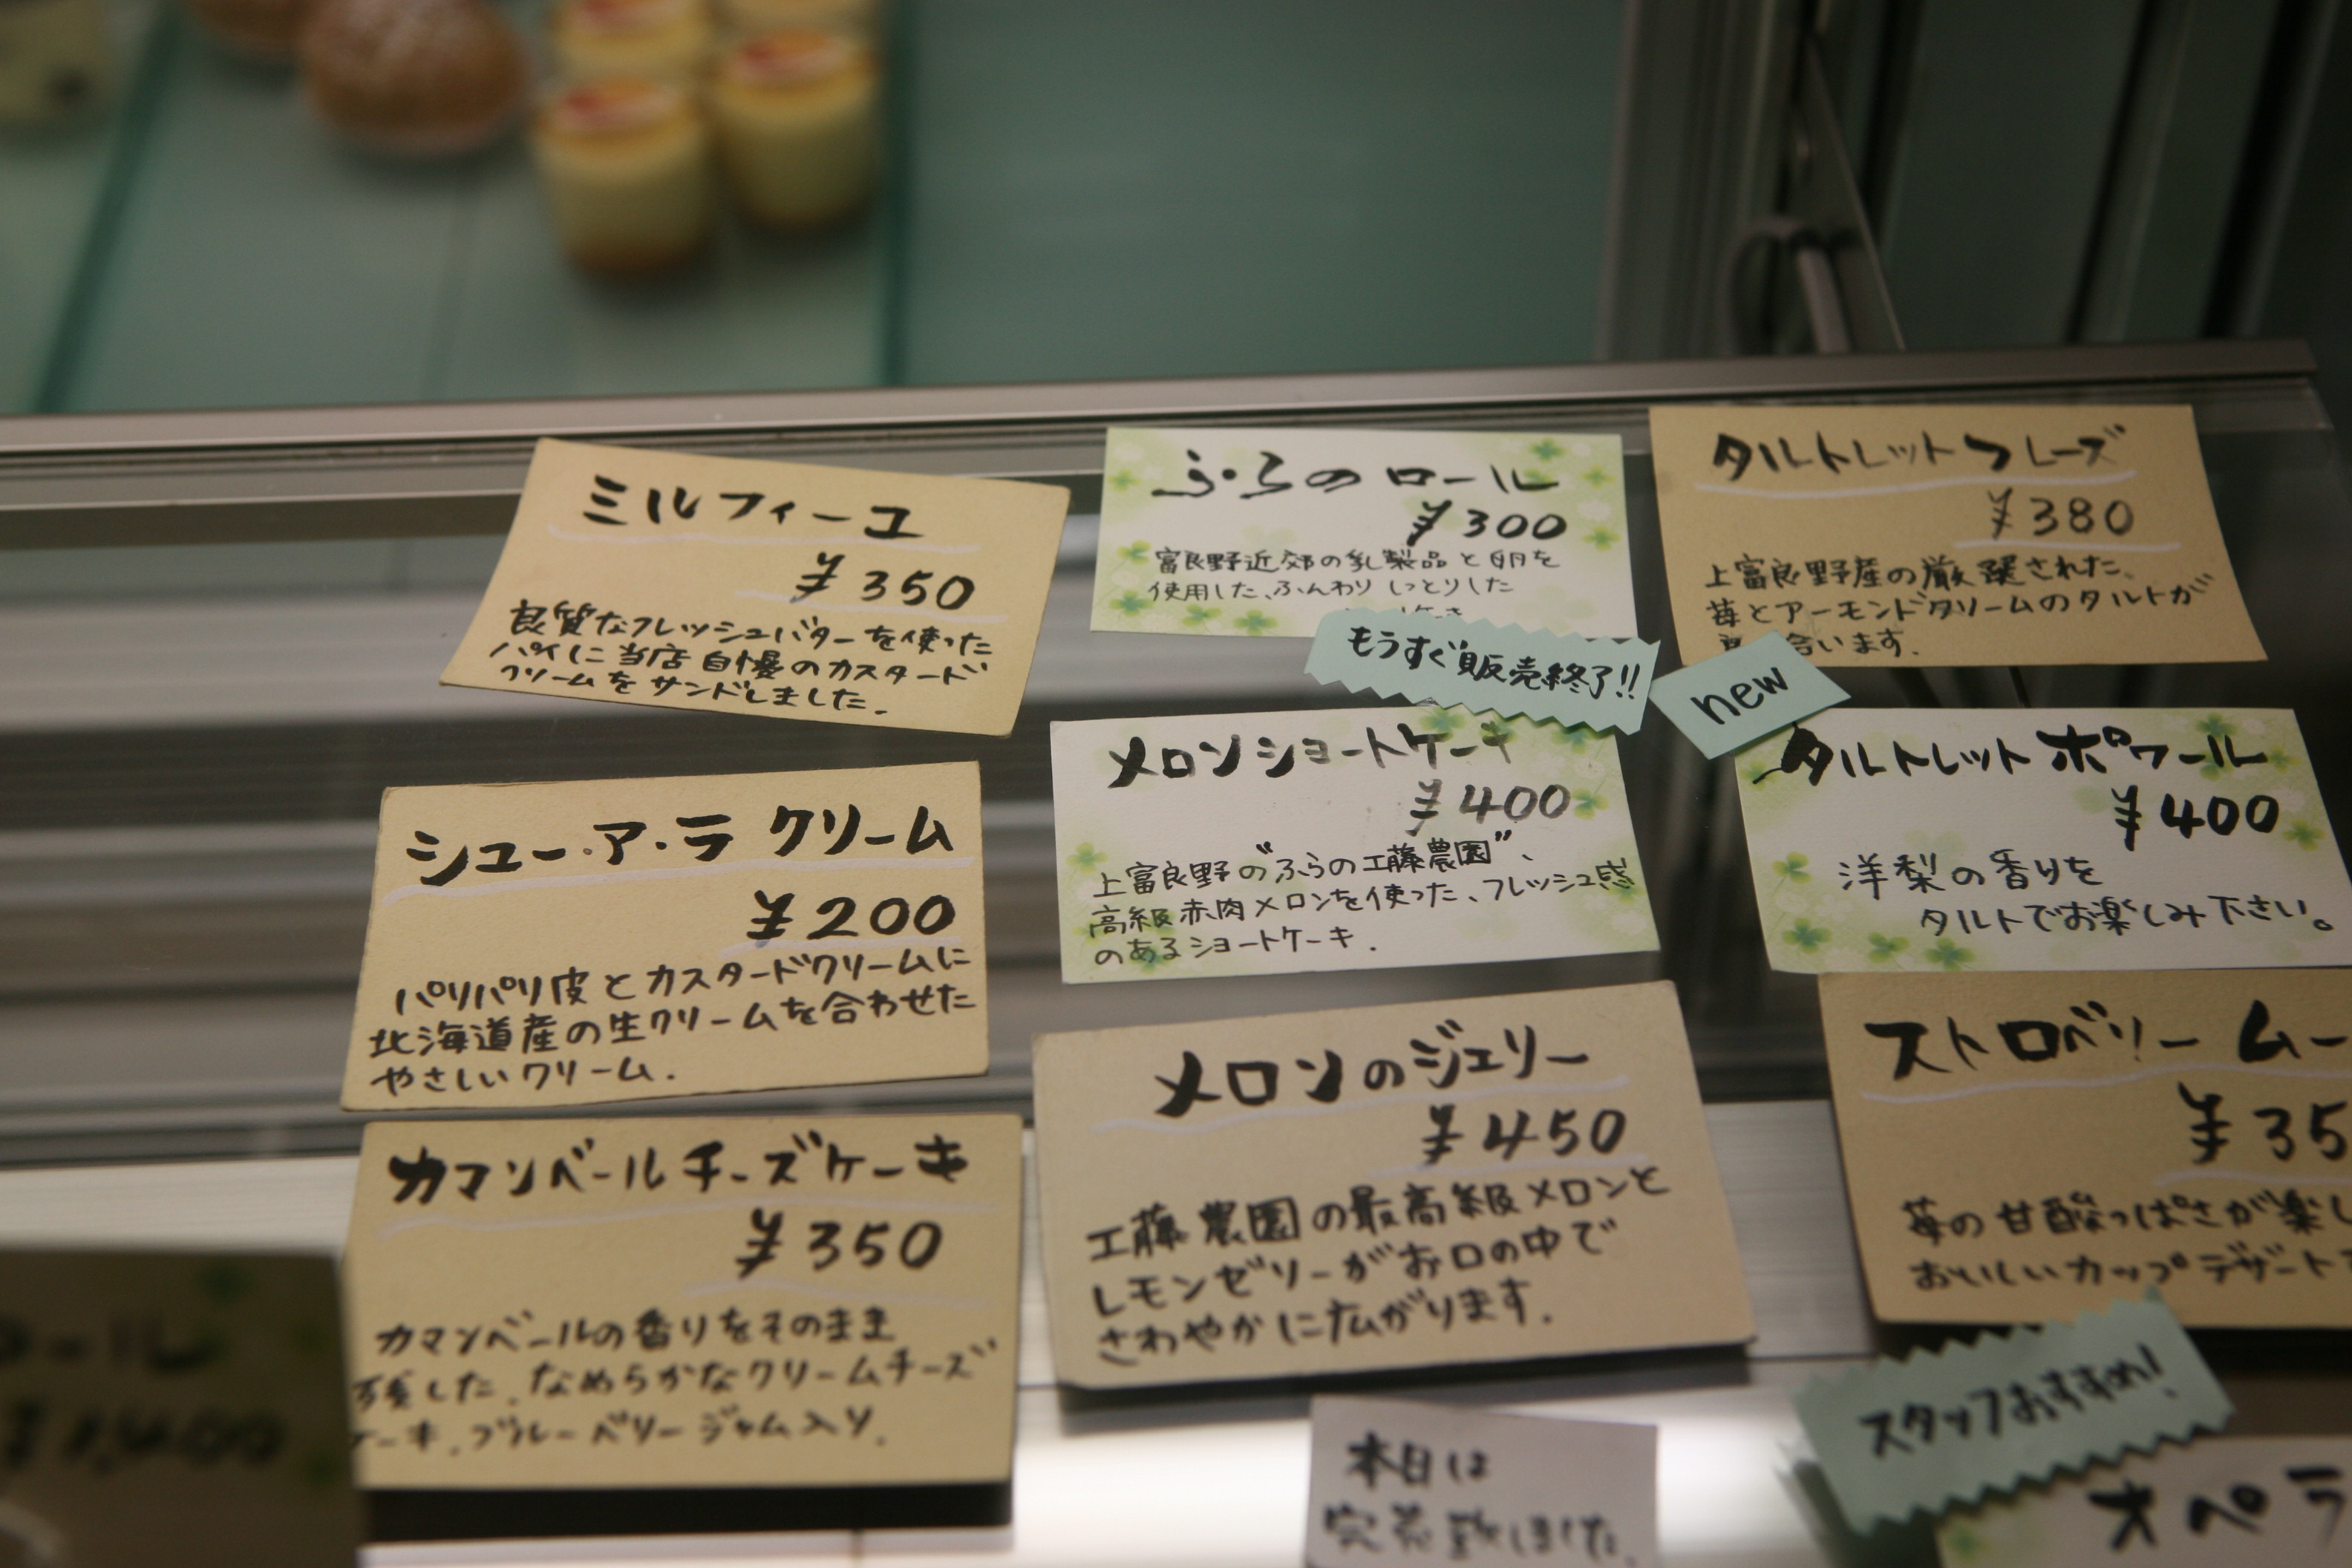 ミルフィーユ
¥350
良質なフレッシュバターを使った
パイに当店自慢のカスタード
クリームをサンドしました.
ふらのロール
¥300
富良野近郊の乳製品と卵を
使用した、ふんわりしっとりした
もうすぐ販売終了!!
タルトレットフレーズ
¥380
上富良野産の厳選された、
苺とアーモンドクリームのタルトが
合います.
new
シュー・ア・ラ クリーム
¥200
パリパリ皮とカスタードクリームに
北海道産の生クリームを合わせた
やさしいクリーム.
メロンショートケーキ
¥400
上富良野の"ふらの工藤農園"、
高級赤肉メロンを使った、フレッシュ感
のあるショートケーキ.
タルトレットポワール
¥400
洋梨の香りを
タルトでお楽しみ下さい。
カマンベールチーズケーキ
¥350
カマンベールの香りをそのまま
残した、なめらかなクリームチーズ
ケーキ.ブルーベリージャム入り.
メロンのジェリー
¥450
工藤農園の最高級メロンと
レモンゼリーがお口の中で
さわやかに広がります.
ストロベリー ムー
¥35
苺の甘酸っぱさが楽し
おいしいカップデザート
ロール
¥1,400
本日は
完売致しました.
スタッフおすすめ!
オペラ